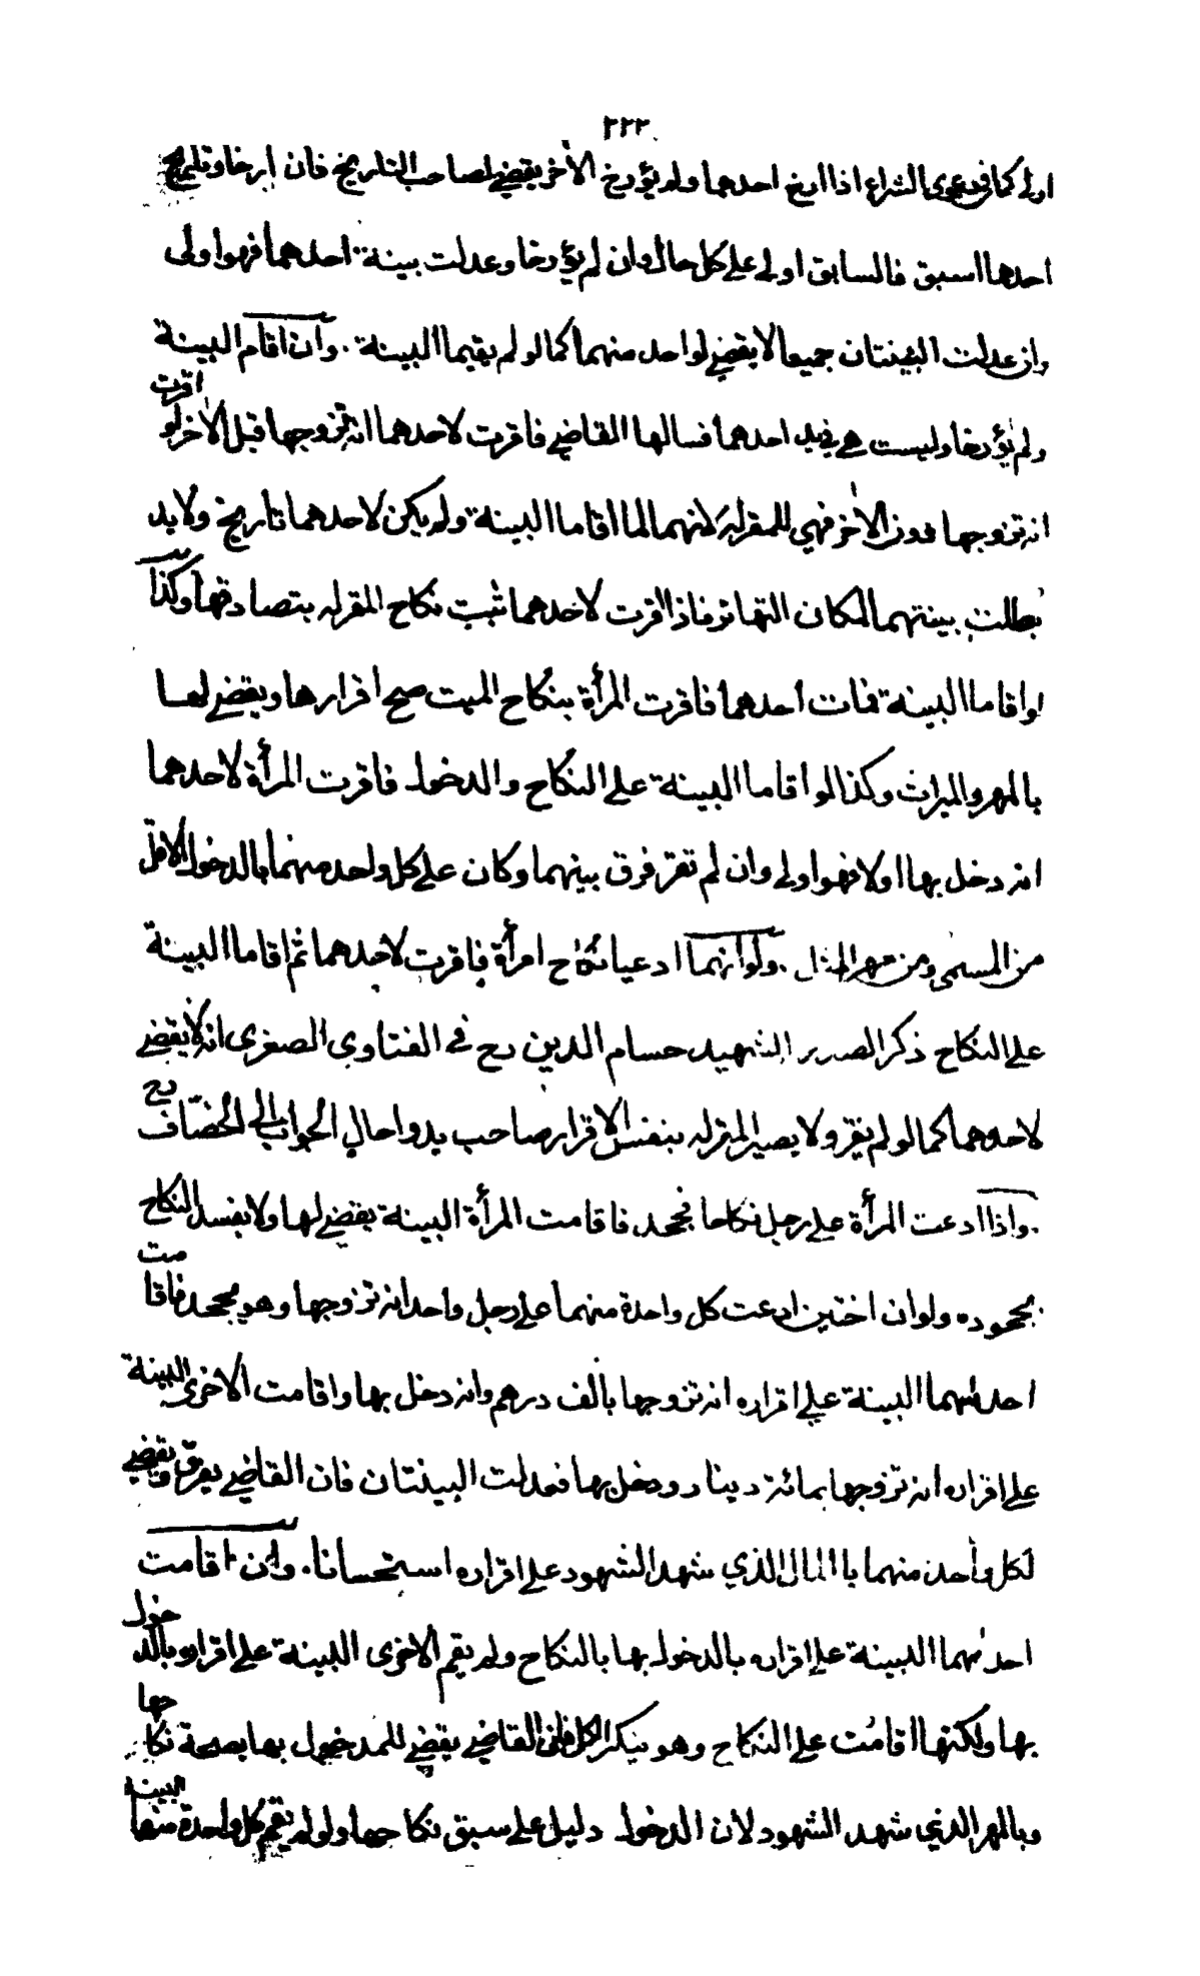 ٢٢٢
اولى كما فى دعوى الشراء اذا ارخ احدهما ولم يؤرخ الآخر يقضي لصاحب التاريخ فان ارخا وتاريخ
احدهما اسبق فالسابق اولى على كل حال وان لم يؤرخا وعدلت بينة احدهما فهو اولى
وان عدلت البينتان جميعا لا يقضي لواحد منهما كما لو لم يقيما البينة . وان اقام البينة
ولم يؤرخا وليست هي فى يد احدهما فسالها القاضي فاقرت لاحدهما انه تزوجها قبل الآخر او اقرت
انه تزوجها دون الآخر فهي للمقر له لانهما لما اقاما البينة ولم يكن لاحدهما تاريخ ولا يد
بطلت بينتهما لمكان التهاتر فاذا اقرت لاحدهما ثبت نكاح المقر له بتصادقهما وكذا
لو اقاما البينة فمات احدهما فاقرت المرأة بنكاح الميت صح اقرارها ويقضي لها
بالمهر والميراث وكذا لو اقاما البينة على النكاح والدخول فاقرت المرأة لاحدهما
انه دخل بها اولا فهو اولى وان لم تقر فرق بينهما وكان على كل واحد منهما بالدخول الاقل
من المسمى ومن مهر المثل . ولو انهما ادعيا نكاح امرأة فاقرت لاحدهما ثم اقاما البينة
على النكاح ذكر الصدر الشهيد حسام الدين رح فى الفتاوى الصغرى انه لا يقضي
لاحدهما كما لو لم يقر ولا يصير المقر له بنفس الاقرار صاحب يد واحال الجواب الى الخصاف رح
. واذا ادعت المرأة على رجل نكاحا فجحد فاقامت المرأة البينة يقضي لها ولا يفسد النكاح
بجحوده ولو ان اختين ادعت كل واحدة منهما على رجل واحد انه تزوجها وهو يجحد فاقامت
احدىهما البينة على اقراره انه تزوجها بالف درهم وانه دخل بها واقامت الاخرى البينة
على اقراره انه تزوجها بمائة دينار ودخل بها فعدلت البينتان فان القاضي يفرق ويقضي
لكل واحدة منهما با المال الذي شهد الشهود على اقراره استحسانا . وان اقامت
احدىهما البينة على اقراره بالدخول بها بالنكاح ولم يقم الاخرى البينة على اقراره بالدخول
بها ولكنها اقامت على النكاح وهو ينكر الكل فان القاضي يقضي للمدخول بها بصحة نكاحها
وبالمهر الذي شهد الشهود لان الدخول دليل على سبق نكاحها ولو لم يقم كل واحدة منهما البينة